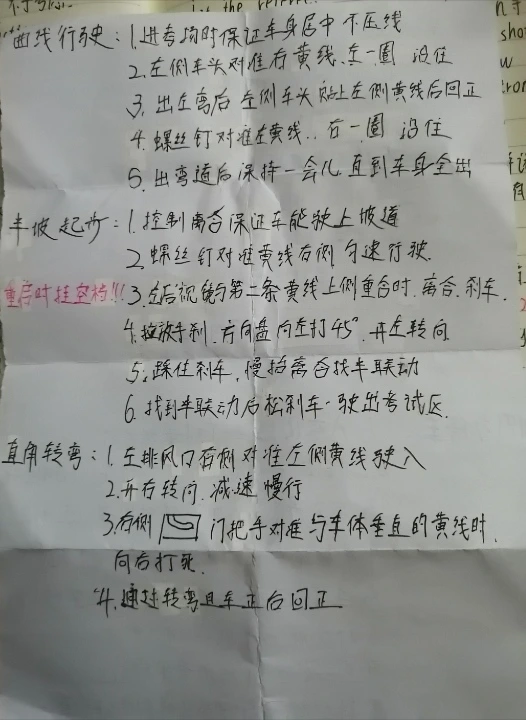 the
n于
sho
w
tron
曲线行驶：1.进考场时保证车身居中不压线
2.左侧车头对准右黄线.左一圈 没住
3.出左离后左侧车头贴上左侧黄线后回正
4.螺丝钉对准左黄线..右一圈 没住
5.出弯道后保持一会儿直到车身全出
半坡起步：1.控制离合保证车能驶上坡道
2.螺丝钉对准黄线右侧匀速行驶.
重启时挂空档!!! 3.左后视镜与第二条黄线上侧重合时.离合.刹车.
4.拉放手刹.方向盘向左打45°.开左转向
5.踩住刹车.慢抬离合找半联动
6.找到半联动后松刹车.驶出考试区.
直角转弯：1.左排风口右侧对准左侧黄线驶入
2.开右转向.减速慢行
3.右侧 门把手对准与车体垂直的黄线时.
向右打死.
4.速转弯且车正后回正